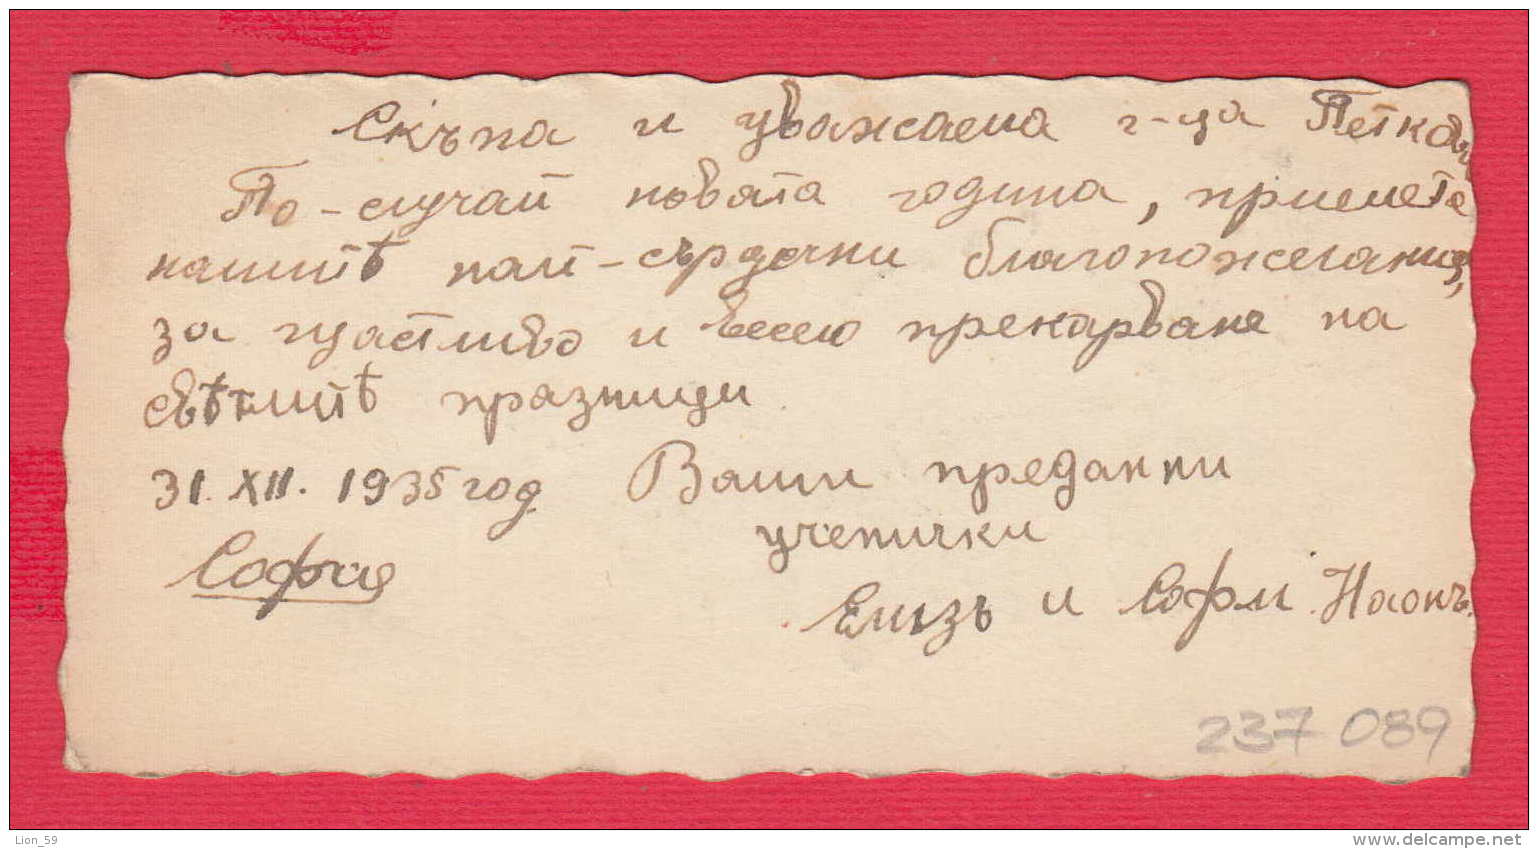 Скъпа и уважаема г-ца Петкова
По-случай новата година, приемете
нашитѣ най-сърдечни благопожелания,
за щастливо и весело прекарване на
свѣтлитѣ празници
31. XII. 1935 год. Ваши преданни
ученички
София
Елизъ и Софи Наонъ.
237 089
Lion_59
www.delcampe.net